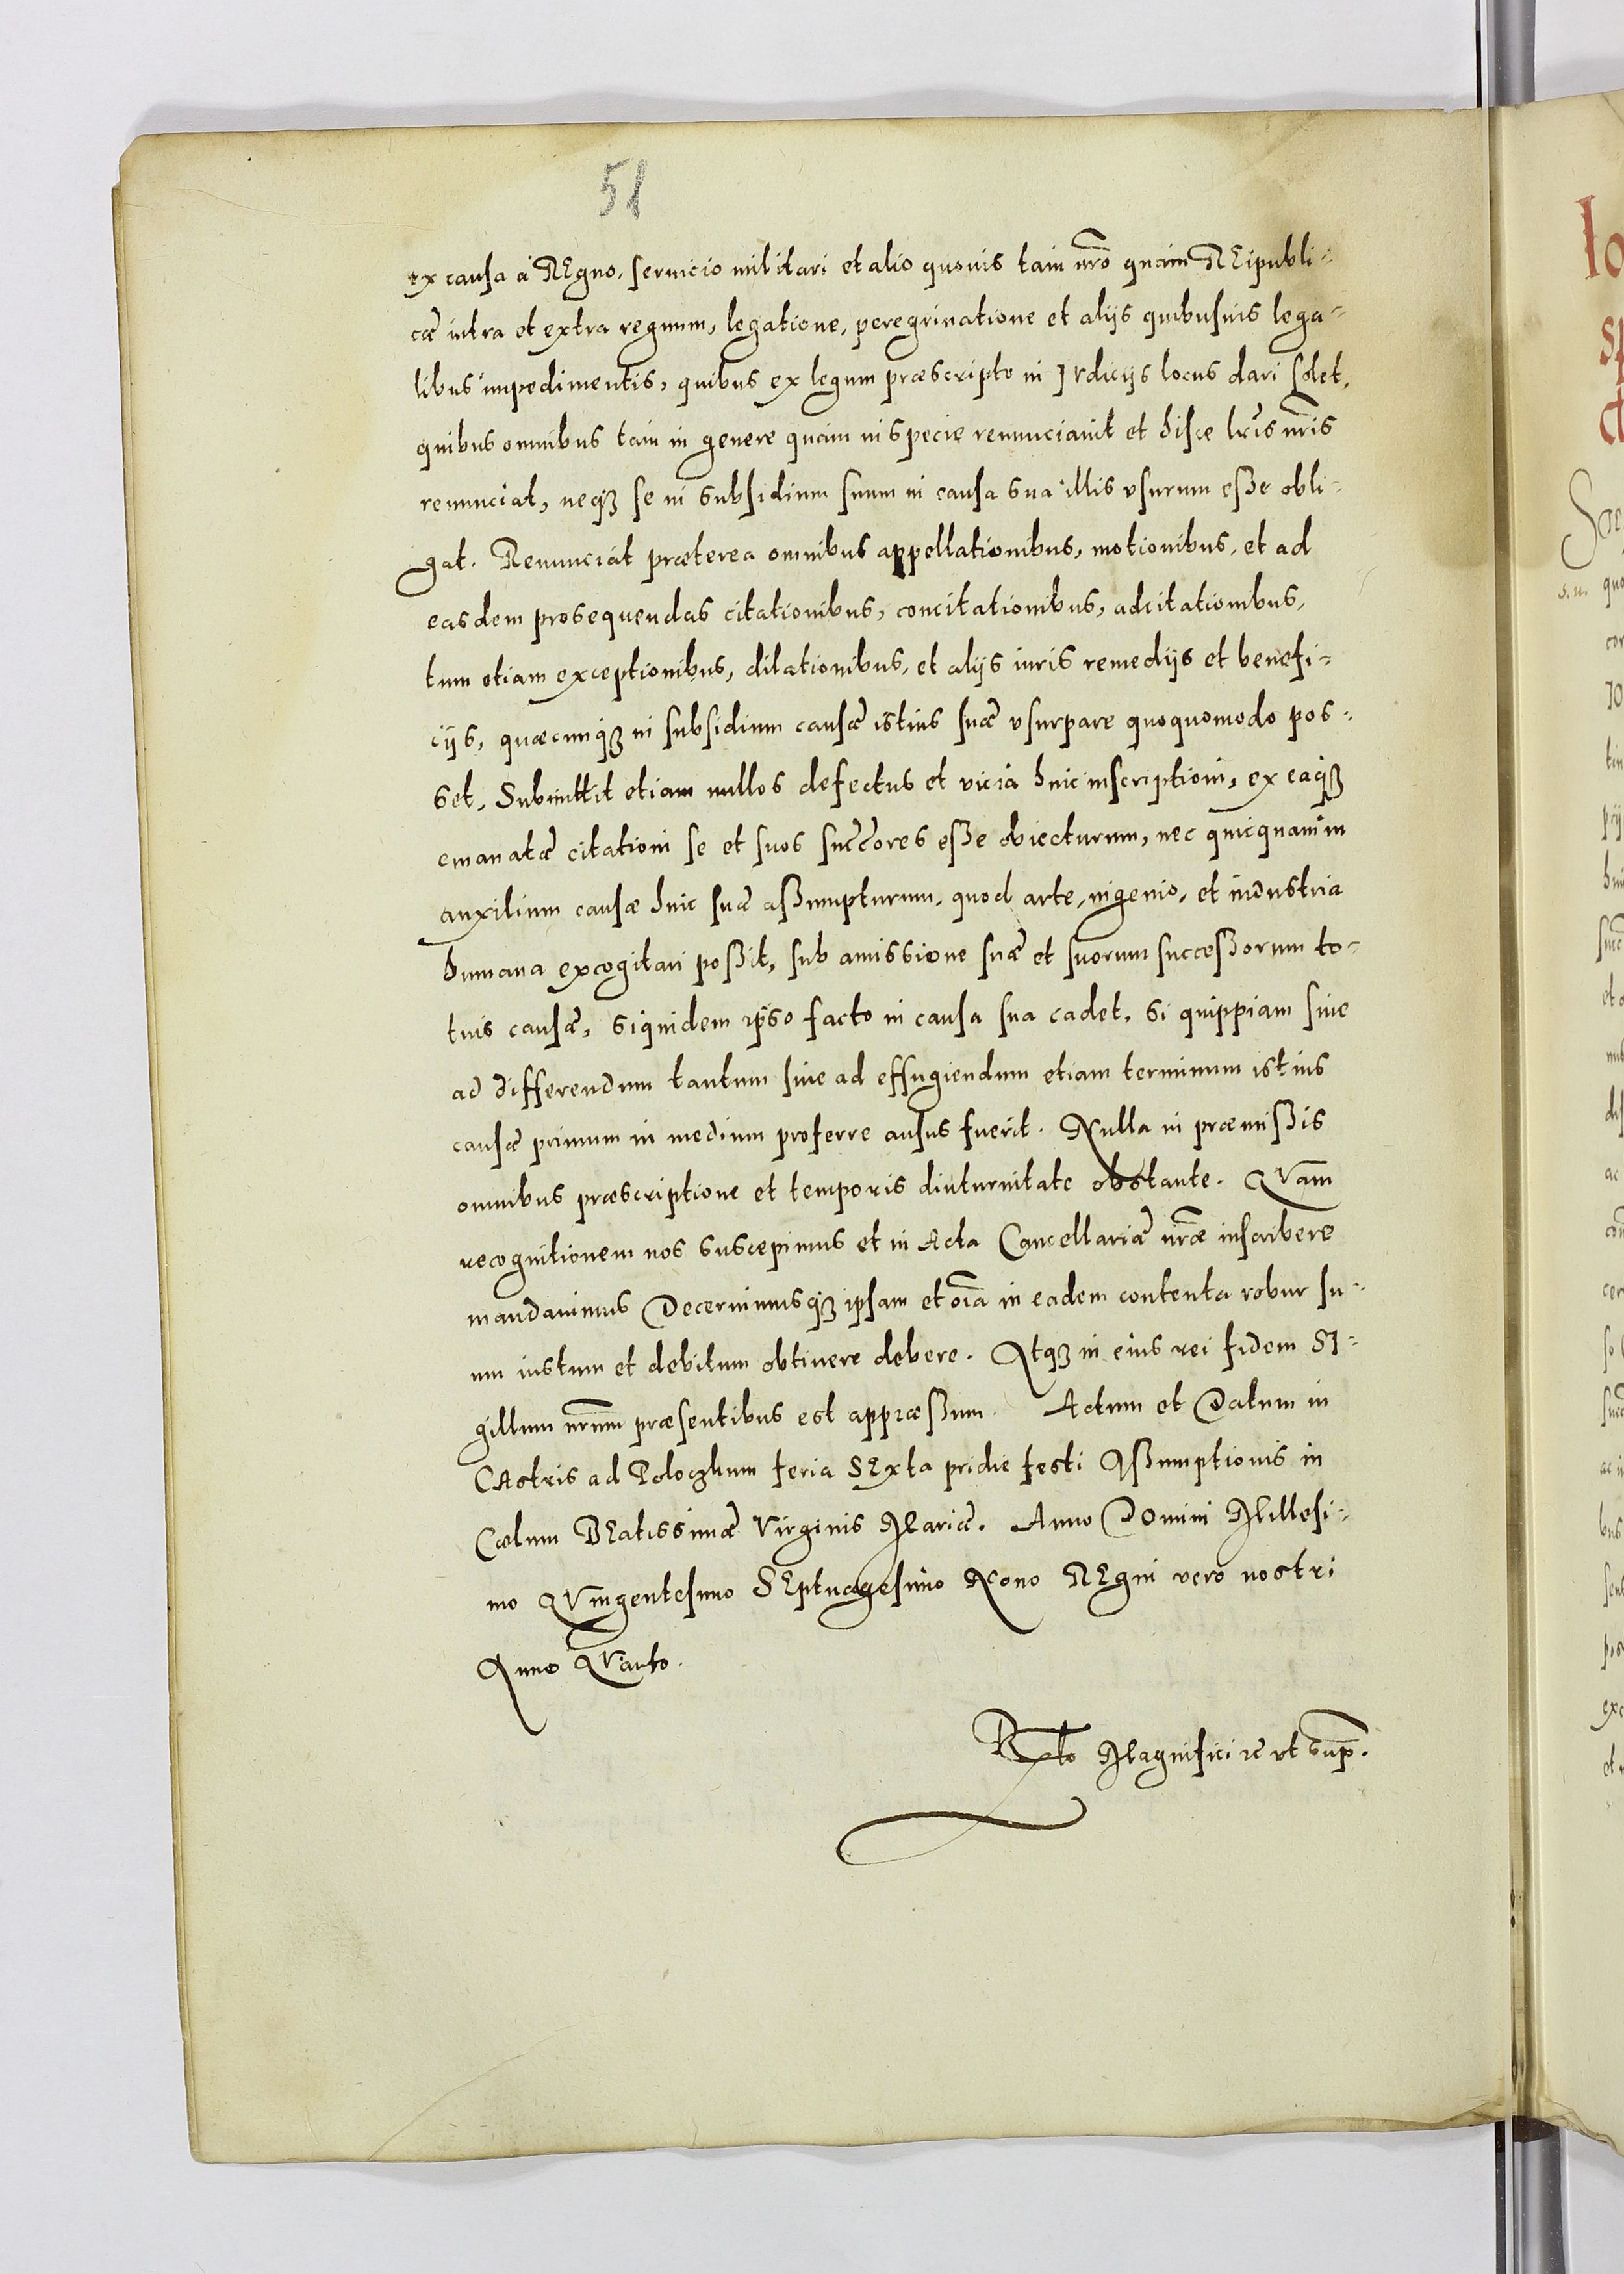 51
ex causa à REgno, seruicio militari et alio quouis tam nr̃o quàm REipubli-
cæ intra et extra regnum, legatione, peregrinatione et alijs quibusuis lega-
libus impedimentis, quibus ex legum præscripto in IVdicijs locus dari solet,
quibus omnibus tam in genere quàm in specie renunciauit et hisce lr̃is nr̃is
renunciat, neqꝫ se in subsidium suum in causa sua illis vsurum eße obli-
gat. Renunciat præterea omnibus appellationibus, motionibus, et ad
easdem prosequendas citationibus, concitationibus, adcitationibus,
tum etiam exceptionibus, dilationibus, et alijs iuris remedijs et benefi-
cijs, quæcunqꝫ in subsidium causæ istius suæ vsurpare quoquomodo pos-
set, Submittit etiam nullos defectus et vicia huic inscriptioni, ex eaqꝫ
emanatæ citationi se et suos succ̃ores eße obiecturum, nec quicquam in
auxilium causæ huic suæ aßumpturum, quod arte, ingenio, et industria
humana excogitari poßit, sub amissione suæ et suorum succeßorum to-
tius causæ, siquidem ipso facto in causa sua cadet, si quippiam siue
ad differendum tantum siue ad effugiendum etiam terminum istius
causæ primum in medium proferre ausus fuerit. Nulla in præmißis
omnibus præscriptione et temporis diuturnitate obstante. QVam
recognitionem nos suscepimus et in Acta Cancellariæ nr̃æ inscribere
mandauimus Decernimusqꝫ ipsam et oĩa in eadem contenta robur su-
um iustum et debitum obtinere debere. Atqꝫ in eius rei fidem SI-
gillum nr̃um præsentibus est appræßum. Actum et Datum in
CAstris ad Poloczkum feria SExta pridie festi Aßumptionis in
Cælum BEatissimæ Virginis Mariæ. Anno DOmini Millesi-
mo QVingentesimo SEptuagesimo Nono REgni vero nostri
Anno QVarto.
Rx̃to Magnifici ꝛc̃ vt sup̃.